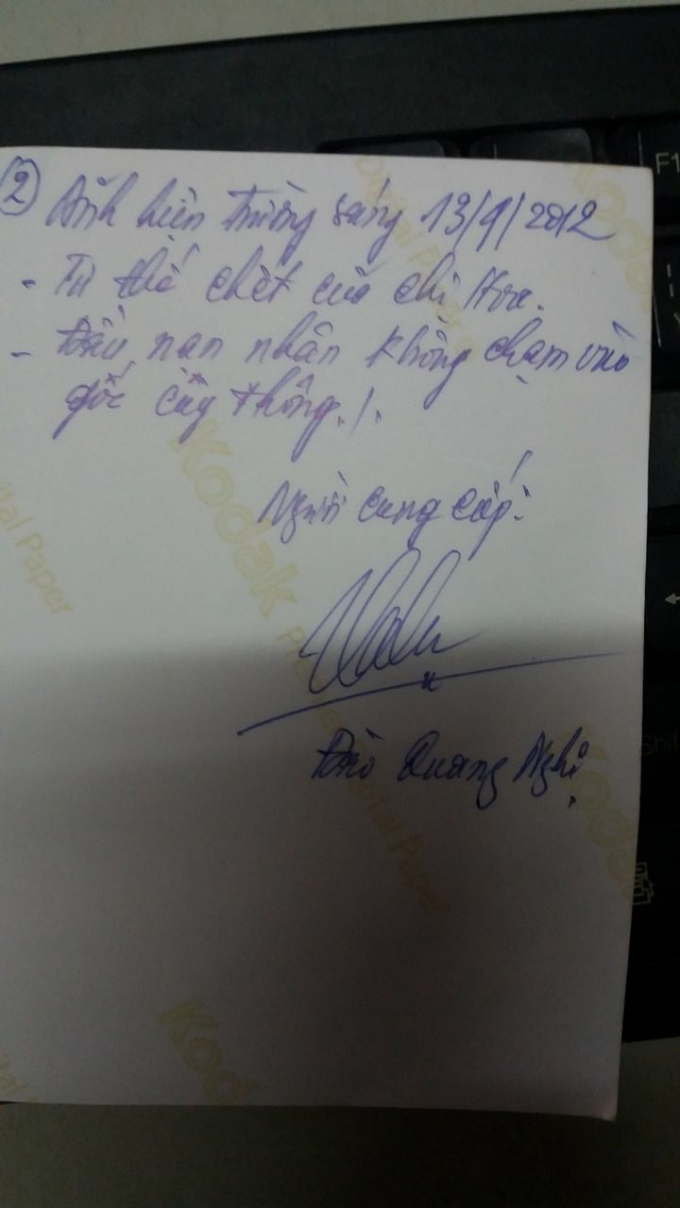 ② Ảnh hiện trường sáng 13/9/2012
- Tư thế chết của chị Hoa.
- Đầu nạn nhân không chạm vào
gốc cây thông./.
Người cung cấp:
Đào Quang Nghị
Kodak
Digital Paper
Kodak
F1
Shift